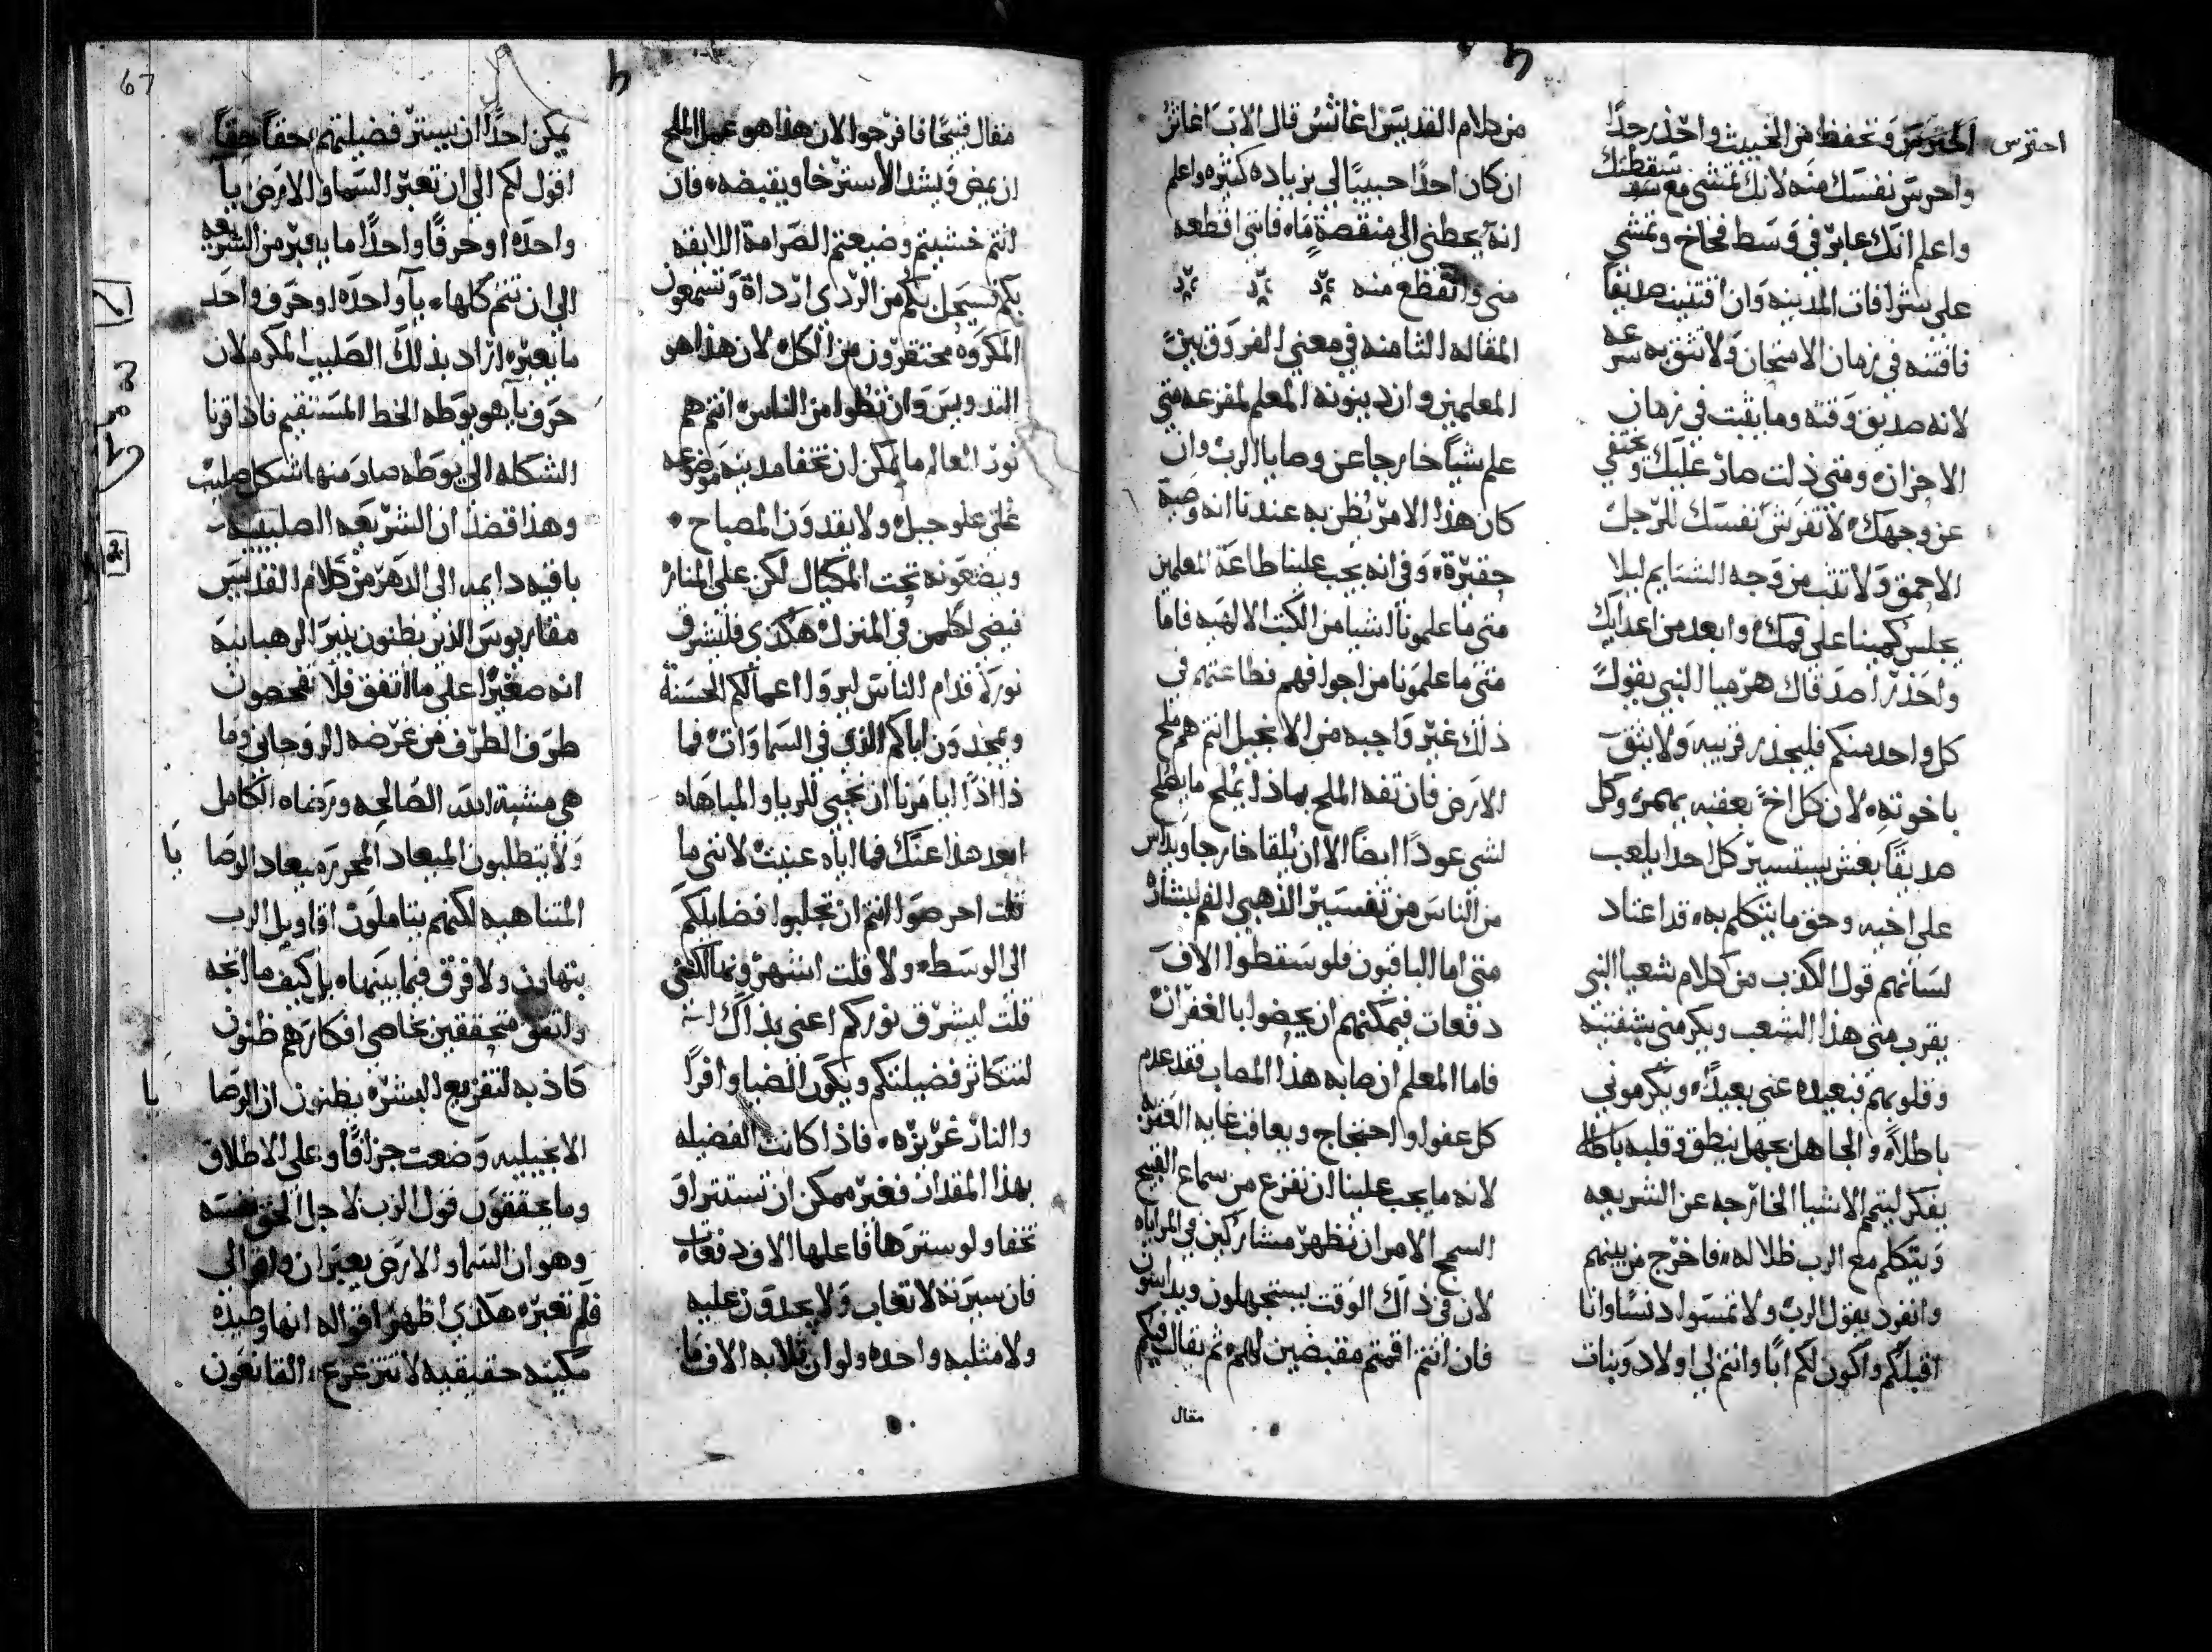 احترس
احترس وتحفظ من الخبيث واحذر جدًا
واحرس نفسك منه لانك تمشي مع سقطتك
واعلم انك عابر في وسط فخاخ وتمشي
على شرافات المدينه وان اقتنيت صديقًا
فاقتنه في زمان الامتحان ولا تثق به سرعه
لانه صديق وقته وما يثبت في زمان
الاحزان ومتى ذلت صار عليك ويختفي
عن وجهك لا تفرش نفسك للرجل
الاحمق ولا تثب من وجه الشتايم ليلا
يجلس كمينا على فمك وابعد من اعدايك
واحذر اصدقاك هرميا النبي يقول
كل واحد منكم فليحذر قريبه ولا يثق
باخوته لان كل اخ بعقبه يعقب وكل
صديقًا بغش يستسير كل احد يلعب
على اخيه وحق ما يتكلم به قد اعتاد
لسانهم قول الكذب من كلام شعيا النبي
يقرب مني هذا الشعب ويكرمني بشفتيه
وقلوبهم فبعيده عني بعيدًا ويكرموني
باطلًا والجاهل بجهل ينطق وقلبه باطلا
يفكر ليتم الاشيا الخارجه عن الشريعه
ويتكلم مع الرب ظلاله فاخرج من بينهم
وانفرد يقول الرب ولا تمسوا دنسًا وانا
اقبلكم واكون لكم ابًا وانتم لي اولاد وبنات
من كلام القديس اغاثن قال الاب اغاثن
ان كان احدًا حبيبًا لي بزياده كثيره واعلم
انه يحطني الى منقصة ماء فانني اقطعه
مني وانقطع منه
المقاله الثامنه في معنى الفروق بين
المعلمين وان دينونة المعلم لمفزعه متى
علم شيًا خارجا عن وصايا الرب وان
كان هذا الامر نظن به عندنا انه وصية
حقيرة وفي انه يجب علينا طاعة المعلمين
متى ما علمونا اشيا من الكتب الالهيه فاما
متى ما علمونا من اجوافهم فطاعتهم في
ذلك غير واجبه من الانجيل انتم هم ملح
الارض فان تفه الملح بماذا يملح ما يصلح
لشي عودًا ايضًا الا ان يلقا خارجا ويداس
من الناس من تفسير الذهبي الفم لبشارة
متى اما الباقيون فلو سقطوا الاف
دفعات فيمكنهم ان يحضوا بالغفران
فاما المعلم ان صابه هذا المصاب فقد عدم
كل عفو واحتجاج ويعاقب غايه العقوبه
لانه ما يجب علينا ان نفزع من سماع القبيح
السمج الا من ان نظهر مشاركين في المراياه
لان في ذاك الوقت يستجهلون ويداسون
فان انتم اقمتم مقبضين لهم ثم يقال فيكم
مقال
مقال قبيحًا فافرحوا الان هذا هو عمل الملح
ان يمض ويشد الاسترخا ويقبضه فان
انتم خشيتم وضيعتم الصرامة اللايقه
بكم فسيحل بكم من الردي ارداة وتسمعون
المكروه محتقرون من الكل لان هذا هو
التدويس وان تظوا من الناس انتم هم
نور العالم ما يمكن ان تخفا مدينه موضوعه
على علو جبل ولا يقدون المصباح
ويضعونه تحت المكيال لكن على المنار
فيضي لكلمن في المنزل هكذى فليشرق
نوركم قدام الناس ليروا اعمالكم الحسنة
ويمجدون اباكم الذي في السماوات فما
ذا اذًا ايامرنا ان نحيي للريا والمباهاه
ابعد هذا عنك فما اياه عنيت لانني ما
قلت احرصوا انتم ان تجلبوا فضايلكم
الى الوسط ولا قلت اشهروها لكنني
قلت ليشرق نوركم اعني بذاك انه
لتتكاثر فضيلتكم ويكون الضيا وافرًا
والنار غزيزه فاذا كانت الفضيله
بهذا المقدار فغير ممكن ان تستتر او
تخفا ولو سترها فاعلها الاف دفعات
فان سيرته لا تعاب ولا يجدون عليه
ولا مثلبه واحده ولو ان ثلابه الاف ما
67
يمكن احدًا ان يستر فضيلتهم حقًا حقًا
اقول لكم الى ان تعبر السما والارض يا
واحده او حرفًا واحدًا ما يعبر من الشريعه
الى ان تتم كلها يآ واحده او حرف واحد
ما يعبر اراد بذلك الصليب المكرم لان
حرف يآ هو يوطه الخط المستقيم فاذا قرنا
الشكله الى يوطه صار منها شكل صليب
وهذا قصد ان الشريعه الصليبيه
باقيه دايمه الى الدهر من كلام القديس
مقاريوس الذين يظنون بنير الرهبانيه
انه صغيرًا على ما اتفق فلا يفحصون
طرف الطرف من غرضه الروحاني وما
هي مشية الله الصالحه ورضاه الكامل
ولا يتطلبون الميعاد المحرر ميعاد الوصا
يا
المتناهيه لكنهم يتاملون اقاويل الرب
بتهاون ولا فرق فيما بينها بل كيف ما اتجه
واتفق متحققين بخاصي افكارهم ظنون
كاذبه لتفزيع البشره يظنون ان الوصا
يا
الانجيليه وضعت جزافًا وعلى الاطلاق
وما يحققون قول الرب لاجل الحق نفسه
وهو ان السما والارض يعبران واقوالي
فلم تعبر هكذى اظهر اقواله انها وطيده
مكينه حقيقيه لا تتزعزع القانعون